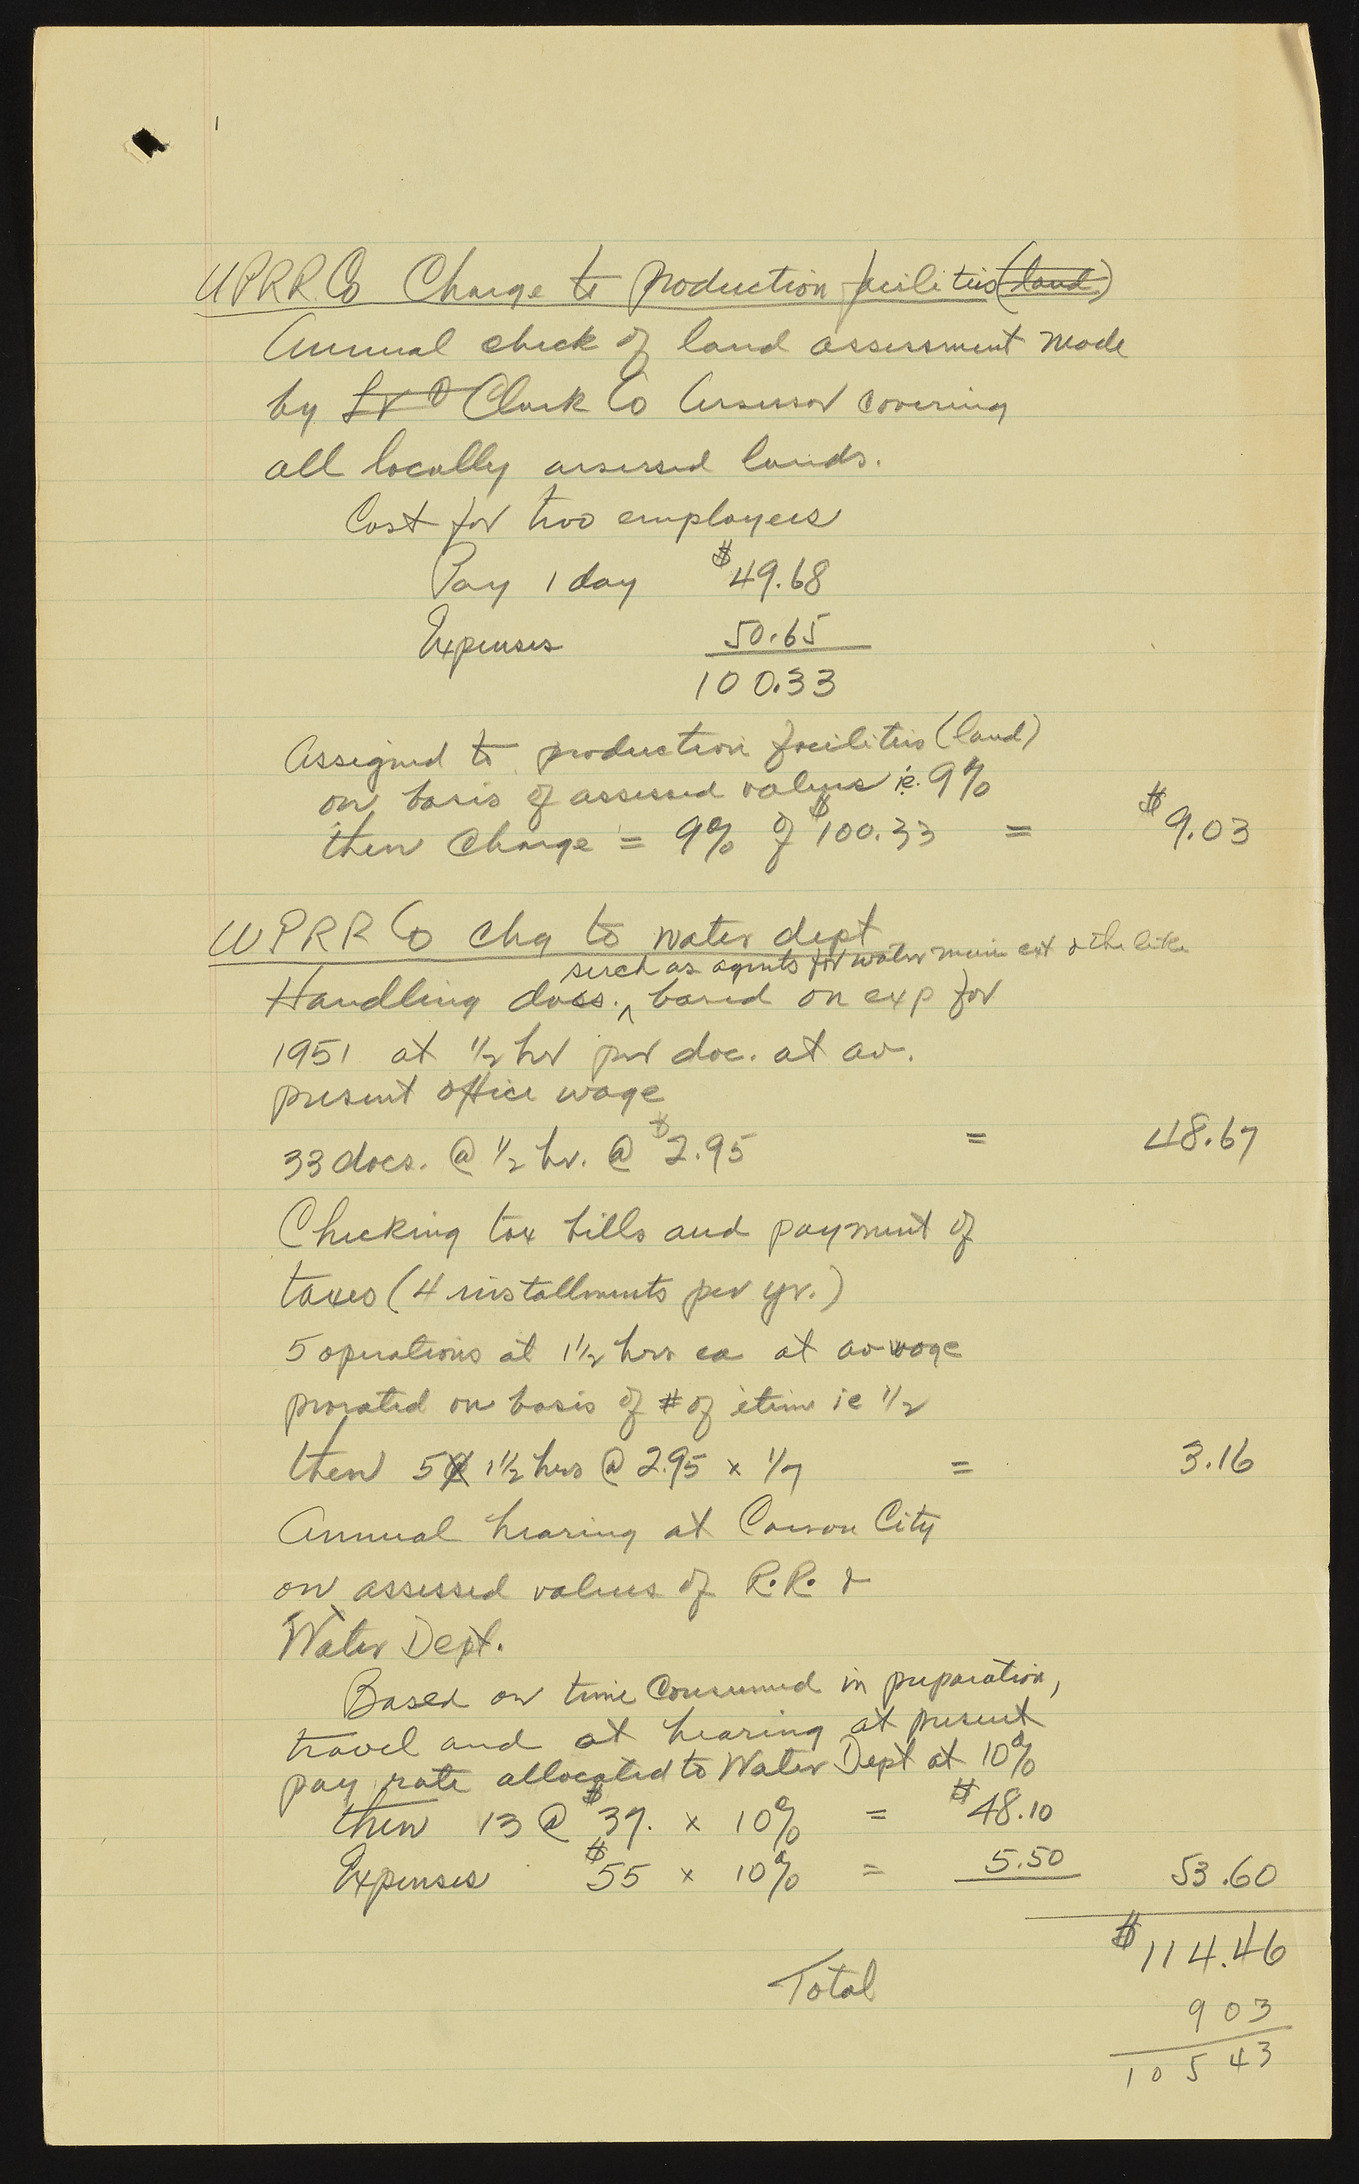 UPRR Co Charge to production facilities (land)
Annual check of land assessment made
by LV & Clark Co Assessor covering
all locally assessed lands.
Cost for two employees
Pay 1 day $49.68
Expenses 50.65
100.33
Assigned to production facilities (land)
on basis of assessed values ie. 9%
then charge = 9% of $100.33 = $9.03
UPRR Co chg to water dept
such as agmts for water main ext & the like
Handling docs. ^ based on exp for
1951 at 1/2 hr per doc. at av.
present office wage
33 docs. @ 1/2 hr. @ $2.95 = 48.67
Checking tax bills and payment of
taxes (4 installments per yr.)
5 operations at 1 1/2 hrs ea at av wage
prorated on basis of # of items ie 1/7
then 5 x 1 1/2 hrs @ 2.95 x 1/7 = 3.16
Annual hearing at Carson City
on assessed values of R.R. &
Water Dept.
Based on time consumed in preparation,
travel and at hearing at present
pay rate allocated to Water Dept at 10%
then 13 @ $37. x 10% = $48.10
Expenses $55 x 10% = 5.50 53.60
Total $114.46
903
10543